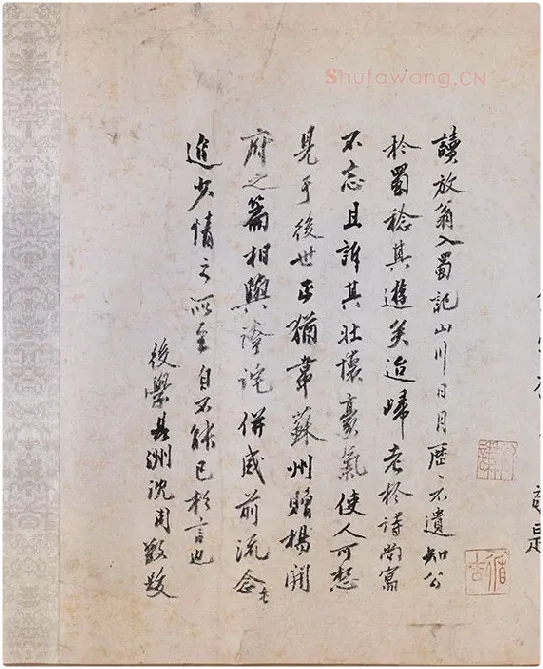 Shufawang.CN
讀放翁入蜀記山川日月歷〻不遺知公
於蜀稔其遊矣迨歸老於詩尚寫
不忘且訴其壯懷豪氣使人可想
見于後世正猶韋蘇州贈楊開
府之篇相與證詫併感前流念
追少情之所至自不能已於言也
後學長洲沈周敬跋